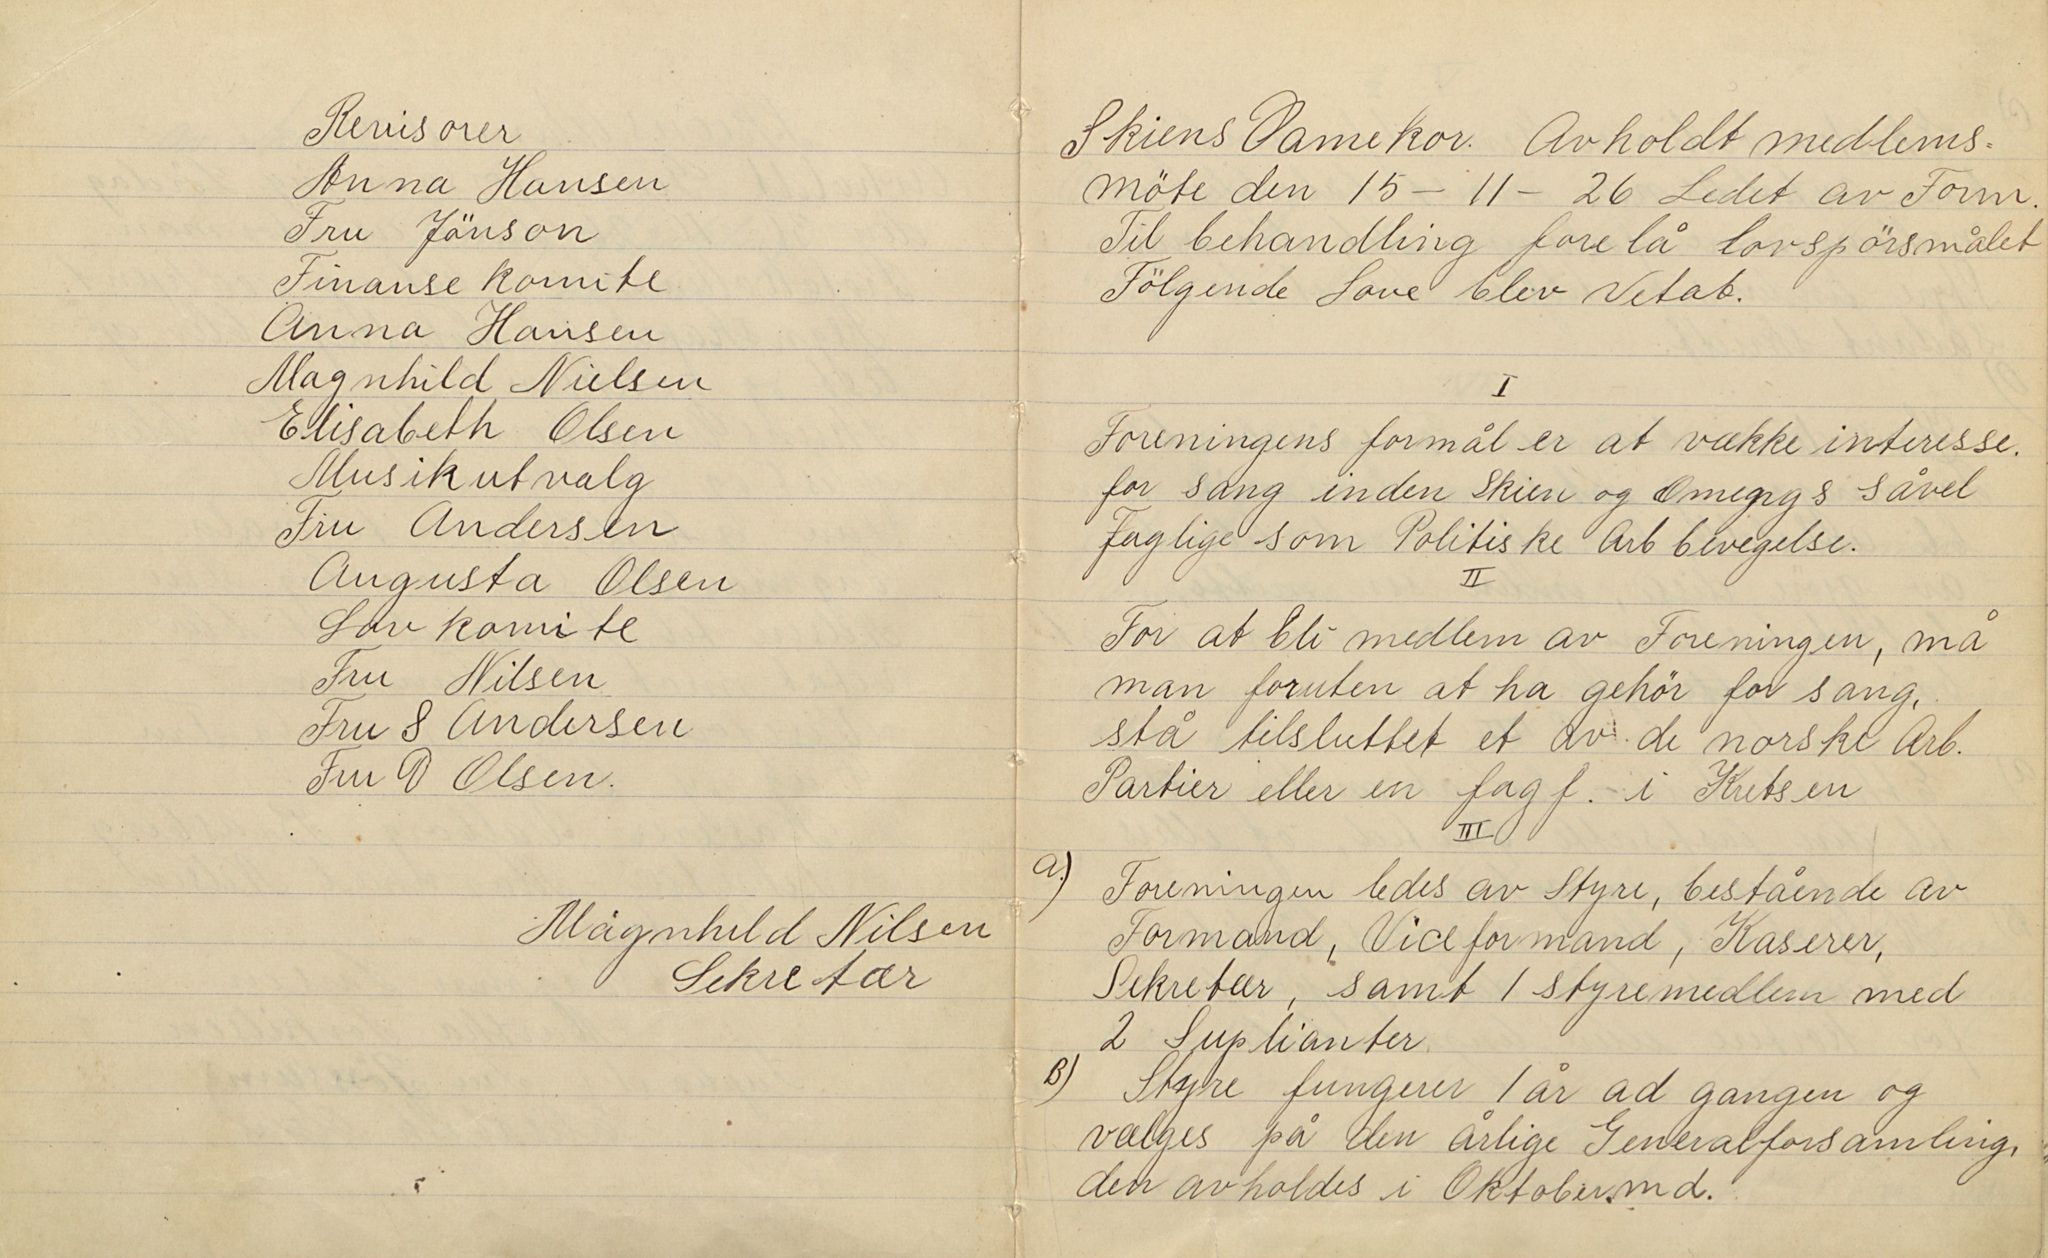 Revisorer
Anna Hansen
Fru Jönson
Finanse komite
Anna Hansen
Magnhild Nielsen
Elisabeth Olsen
Musikutvalg
Fru Andersen
Augusta Olsen
Lov komite
Fru Nilsen
Fru S Andersen
Fru D Olsen.
Magnhild Nilsen
Sekretær
Skiens Damekor. Avholdt medlems-
möte den 15 - 11 - 26 Ledet av Form.
Til behandling forelå lovspörsmålet
Fölgende Love blev Vetat.
I
Foreningens formål er at vække interesse.
for sang inden Skien og Omegngs såvel
Faglige som Politiske Arb bevegelse.
II
For at bli medlem av Foreningen, må
man foruten at ha gehör for sang,
stå tilsluttet et av de norske Arb.
Partier eller en fagf. i Kretsen
III
A.) Foreningen ledes av Styre, bestående av
Formand, Viceformand, Kaserer,
Sekretær, samt 1 styremedlem med
2 Suplianter.
B) Styre fungerer 1 år ad gangen og
vælges på den årlige Generalforsamling,
den avholdes i Oktober.md.